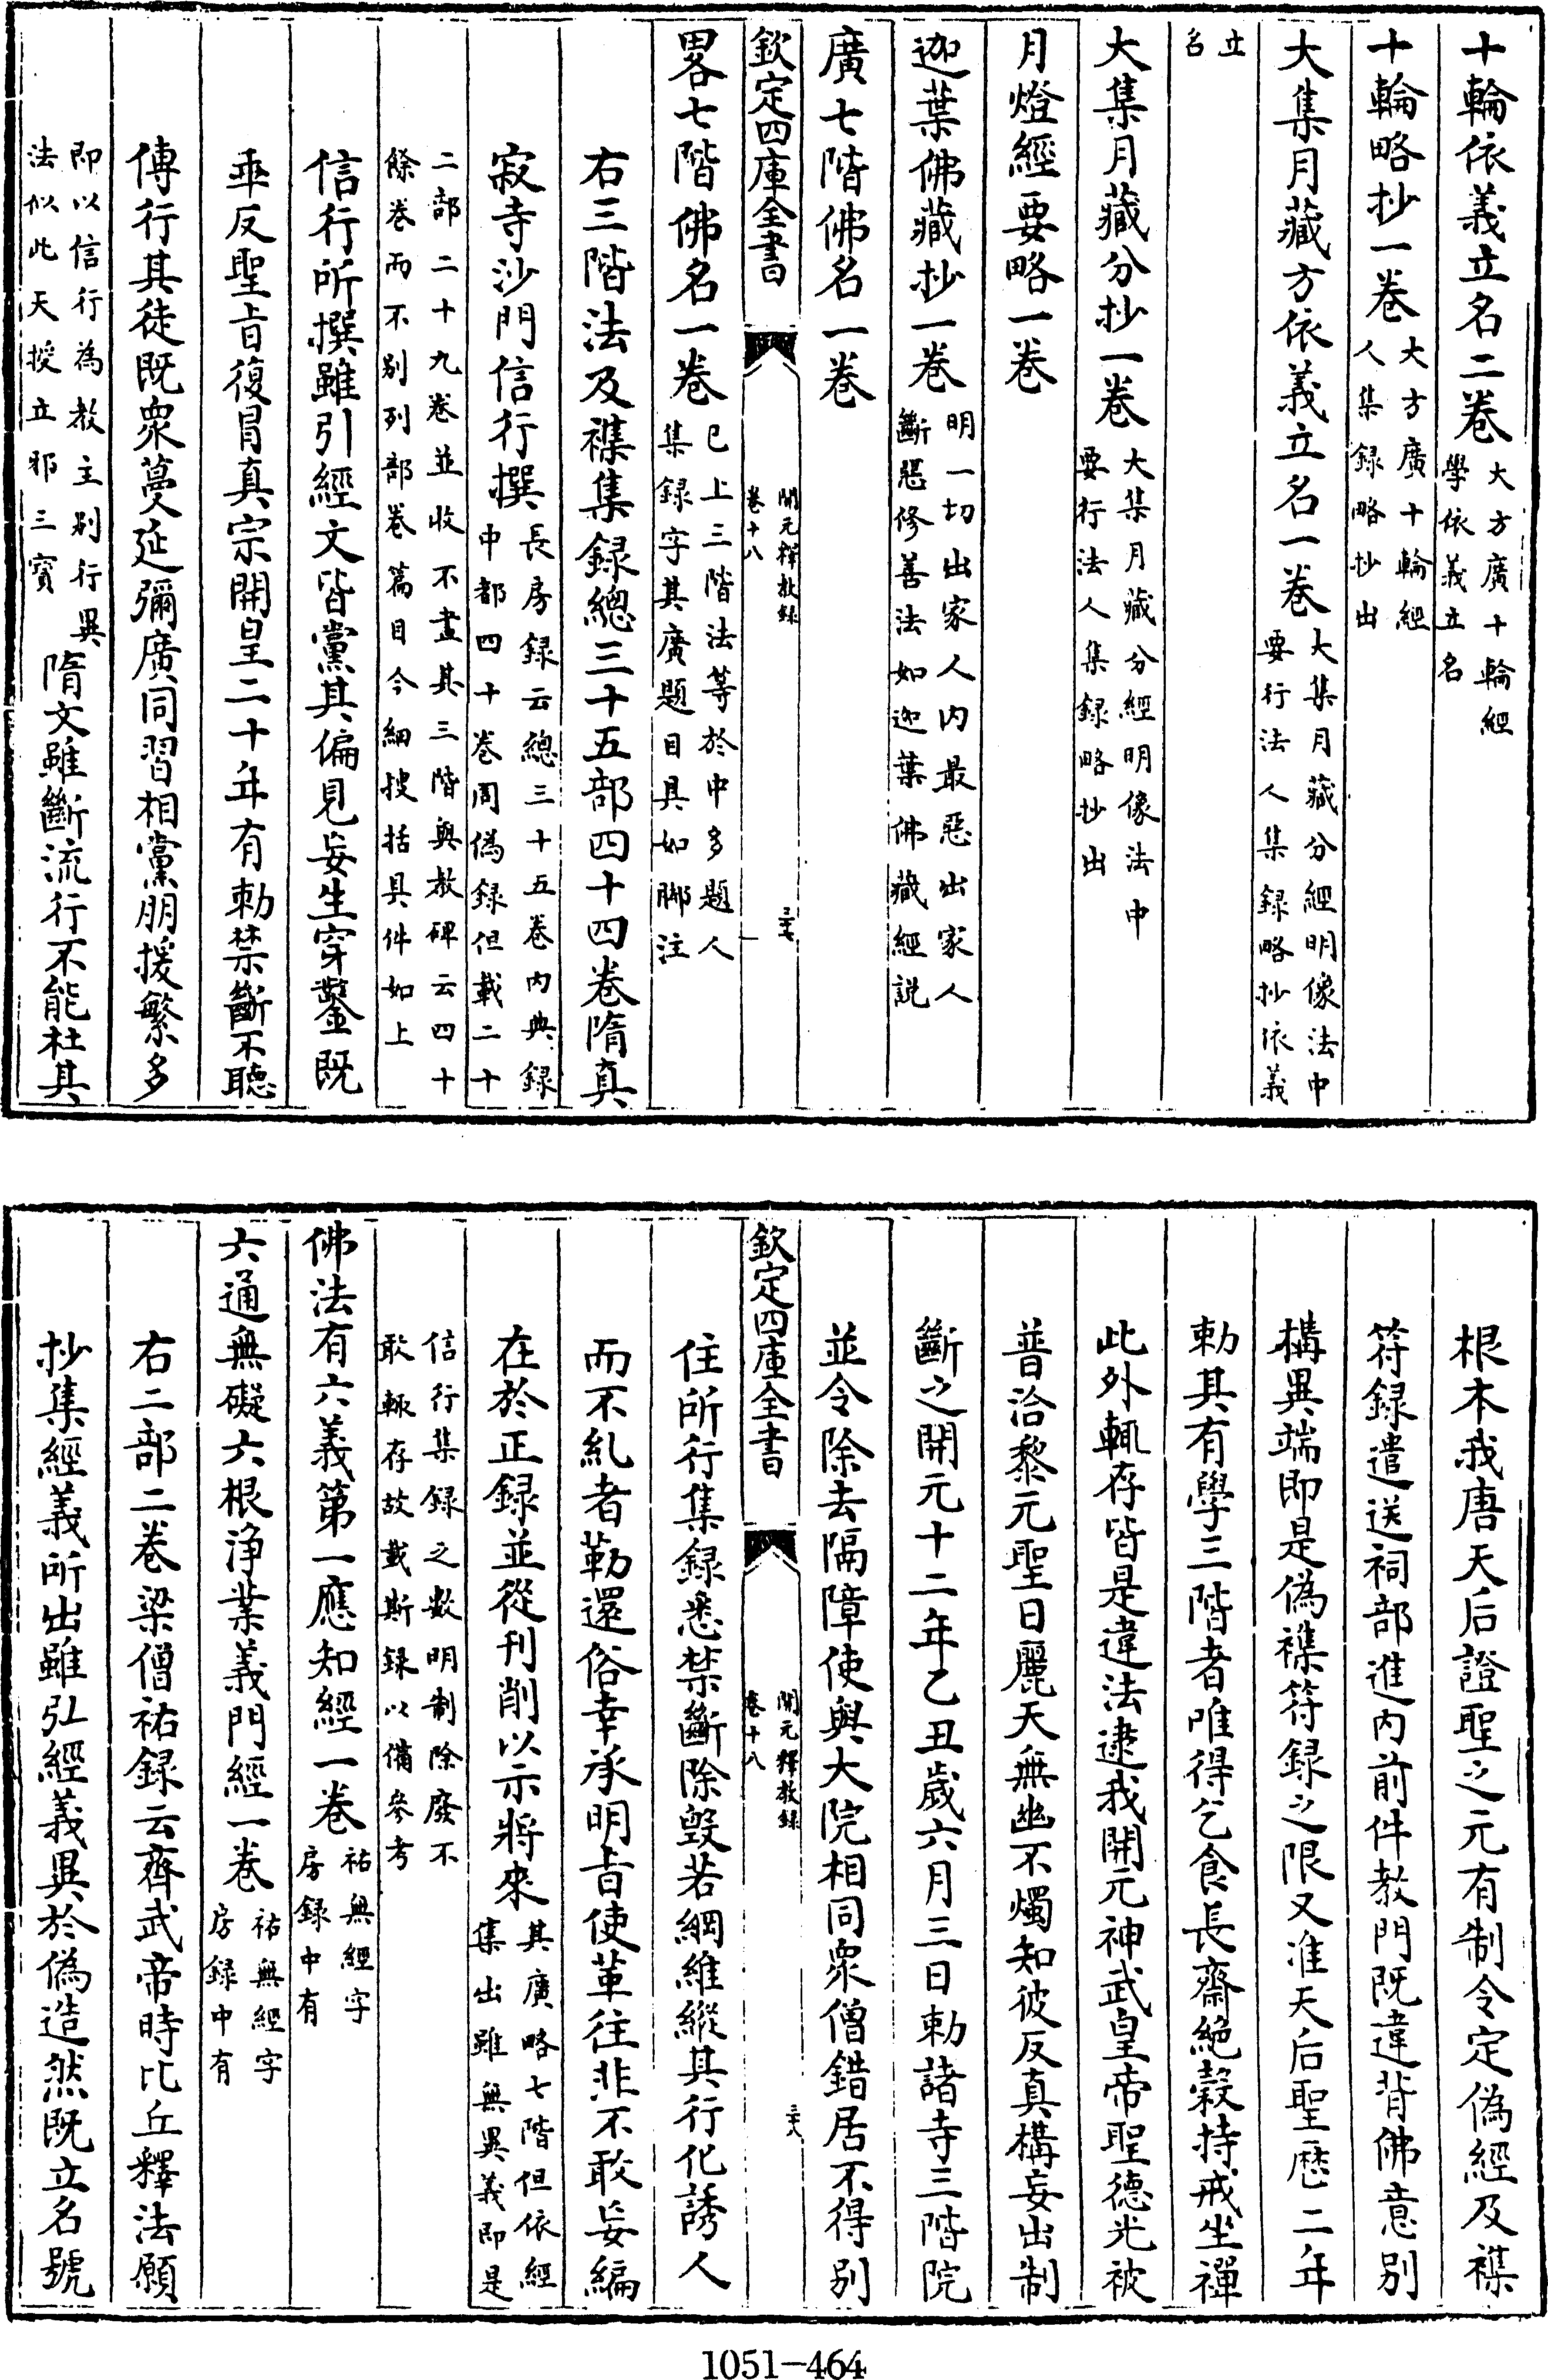 十輪依義立名二卷大方廣十輪經學依義立名
十輪略抄一卷大方廣十輪經人集録略抄出
大集月藏方依義立名一卷大集月藏分經明像法中要行法人集録略抄依義
立名
大集月藏分抄一卷大集月藏分經明像法中要行法人集録略抄出
月燈經要略一卷
迦葉佛藏抄一卷明一切出家人内最惡出家人斷惡修善法如迦葉佛藏經説
廣七階佛名一卷
欽定四庫全書 開元釋教録卷十八 三七
畧七階佛名一卷已上三階法等於中多題人集録字其廣題目具如脚注
右三階法及襍集録總三十五部四十四卷隋真
寂寺沙門信行撰長房録云總三十五卷内典録中都四十卷周偽録但載二十
二部二十九卷並收不盡其三階興教碑云四十餘卷而不别列部卷篇目今細搜括具件如上
信行所撰雖引經文皆黨其偏見妄生穿鑿既
乖反聖旨復冐真宗開皇二十年有勅禁斷不聽
傳行其徒既衆蔓延彌廣同習相黨朋援繁多
即以信行為教主别行異法似此天授立邪三寳隋文雖斷流行不能杜其
根本我唐天后證聖之元有制令定偽經及襍
符録遣送祠部進内前件教門既違背佛意别
構異端即是偽襍符録之限又准天后聖厯二年
勅其有學三階者唯得乞食長齋絶穀持戒坐禪
此外輒存皆是違法逮我開元神武皇帝聖德光被
普洽黎元聖日麗天無幽不燭知彼反真構妄出制
斷之開元十二年乙丑歲六月三日勅諸寺三階院
並令除去隔障使與大院相同衆僧錯居不得别
欽定四庫全書 開元釋教録卷十八 三八
住所行集録悉禁斷除毁若綱維縱其行化誘人
而不糺者勒還俗幸承明旨使革往非不敢妄編
在於正録並從刊削以示將來其廣略七階但依經集出雖無異義即是
信行集録之數明制除廢不敢輒存故載斯録以備參考
佛法有六義第一應知經一卷祐無經字房録中有
六通無礙六根浄業義門經一卷祐無經字房録中有
右二部二卷梁僧祐録云齊武帝時比丘釋法願
抄集經義所出雖弘經義異於偽造然既立名號
1051-464